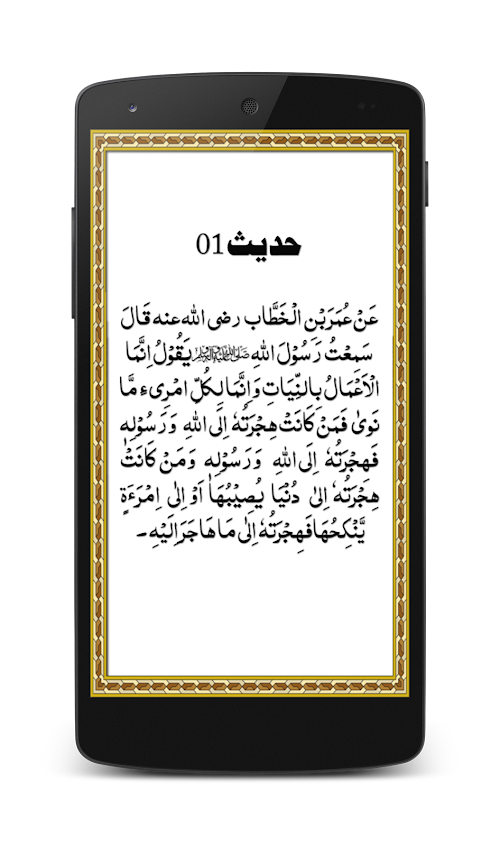 حدیث 01
عَنْ عُمَرَ بْنِ الْخَطَّابِ رضی اللہ عنہ قَالَ
سَمِعْتُ رَسُوْلَ اللهِ ﷺ يَقُوْلُ اِنَّمَا
الْاَعْمَالُ بِالنِّيَاتِ وَاِنَّمَا لِكُلِّ امْرِیءٍ مَّا
نَوٰى فَمَنْ كَانَتْ هِجْرَتُهٗ اِلَى اللهِ وَرَسُوْلِهٖ
فَهِجْرَتُهٗ اِلَى اللهِ وَرَسُوْلِهٖ وَمَنْ كَانَتْ
هِجْرَتُهٗ اِلىٰ دُنْيَا يُصِيْبُهَا اَوْ اِلىٰ اِمْرَءَةٍ
يَّنْكِحُهَا فَهِجْرَتُهٗ اِلىٰ مَا هَاجَرَ اِلَيْهِ۔